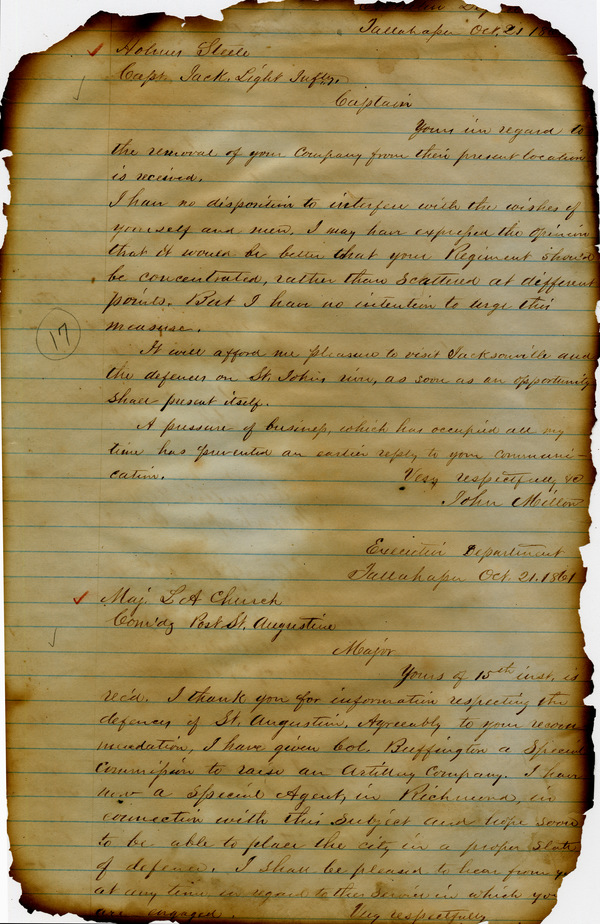 Tallahassee Oct. 21 18
Holmes Steele
Capt. Jack. Light Infty,
Captain
Yours in regard to
the removal of your Company from their present location
is received.
I have no disposition to interfere with the wishes of
yourself and men. I may have expressed the opinion
that it would be better that your Regiment should
be concentrated, rather than scattered at different
points. But I have no intention to urge this
measure.
17
It will afford me pleasure to visit Jacksonville and
the defences on St. Johns river, as soon as an opportunity
shall present itself.
A pressure of business, which has occupied all my
time has prevented an earlier reply to your communi-
cation. Very respectfully &c
John Milton
Executive Department
Tallahassee Oct. 21. 1861
Maj. L A Church
Com'dg Post St. Augustine
Major
Yours of 15th inst. is
rec'd. I thank you for information respecting the
defences of St. Augustine. Agreeably to your recom
mendation, I have given Col. Buffington a Special
Commission to raise an Artillery Company. I have
now a Special Agent, in Richmond, in
connection with this subject and hope soon
to be able to place the city in a proper state
of defence. I shall be pleased to hear from yo
at any time in regard to the service in which yo
are engaged. Very respectfully